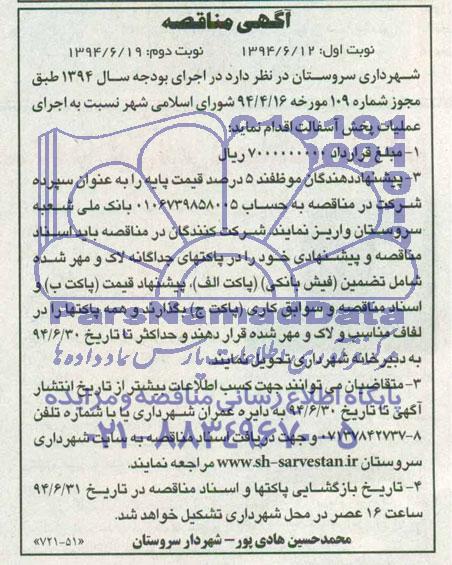 آگهی مناقصه
نوبت اول: ۱۳۹۴/۶/۱۲ نوبت دوم: ۱۳۹۴/۶/۱۹
شهرداری سروستان در نظر دارد در اجرای بودجه سال ۱۳۹۴ طبق
مجوز شماره ۱۰۹ مورخه ۹۴/۴/۱۶ شورای اسلامی شهر نسبت به اجرای
عملیات پخش آسفالت اقدام نماید:
۱- مبلغ قرارداد ۷۰۰۰۰۰۰۰۰۰ ریال
۲- پیشنهاددهندگان موظفند ۵ درصد قیمت پایه را به عنوان سپرده
شرکت در مناقصه به حساب ۰۱۰۶۷۳۹۸۵۸۰۰۵ بانک ملی شعبه
سروستان واریز نمایند. شرکت کنندگان در مناقصه باید اسناد
مناقصه و پیشنهادی خود را در پاکتهای جداگانه لاک و مهر شده
شامل تضمین (فیش بانکی) (پاکت الف)، پیشنهاد قیمت (پاکت ب) و
اسناد مناقصه و سوابق کاری (پاکت ج) بگذارند و همه پاکتها را در
لفاف مناسب و لاک و مهر شده قرار دهند و حداکثر تا تاریخ ۹۴/۶/۳۰
به دبیرخانه شهرداری تحویل نمایند.
۳- متقاضیان می توانند جهت کسب اطلاعات بیشتر از تاریخ انتشار
آگهی تا تاریخ ۹۴/۶/۳۰ به دایره عمران شهرداری یا با شماره تلفن
۸-۰۷۱۳۷۸۴۲۷۳۷ و جهت دریافت اسناد مناقصه به سایت شهرداری
سروستان www.sh-sarvestan.ir مراجعه نمایند.
۴- تاریخ بازگشایی پاکتها و اسناد مناقصه در تاریخ ۹۴/۶/۳۱
ساعت ۱۶ عصر در محل شهرداری تشکیل خواهد شد.
محمدحسین هادی پور- شهردار سروستان «۷۲۱-۵۱»
ParsNamadData
پایگاه اطلاع رسانی مناقصه و مزایده
۰۲۱-۸۸۳۴۹۶۷۰-۵